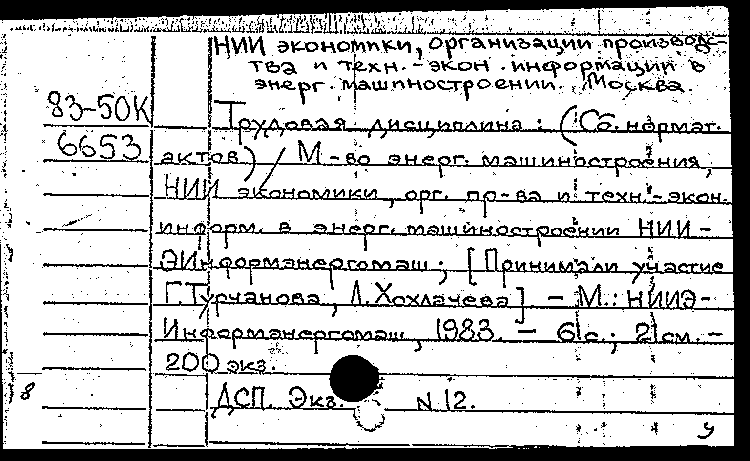 НИИ экономики, организации производс-
тва и техн.-экон. информации в
энерг. машиностроении. Москва.
83-50К
Трудовая дисциплина: (Сб. нормат.
6653
актов) / М-во энерг. машиностроения,
НИИ экономики, орг. пр-ва и техн.-экон.
информ. в энерг. машиностроении НИИ-
ЭИнформэнергомаш; [Принимали участие
Г. Турчанова, Л. Хохлачева] - М.: НИИЭ-
Информэнергомаш, 1983. - 61 с.; 21 см. -
200 экз.
8
ДСП. Экз. N 12.
У